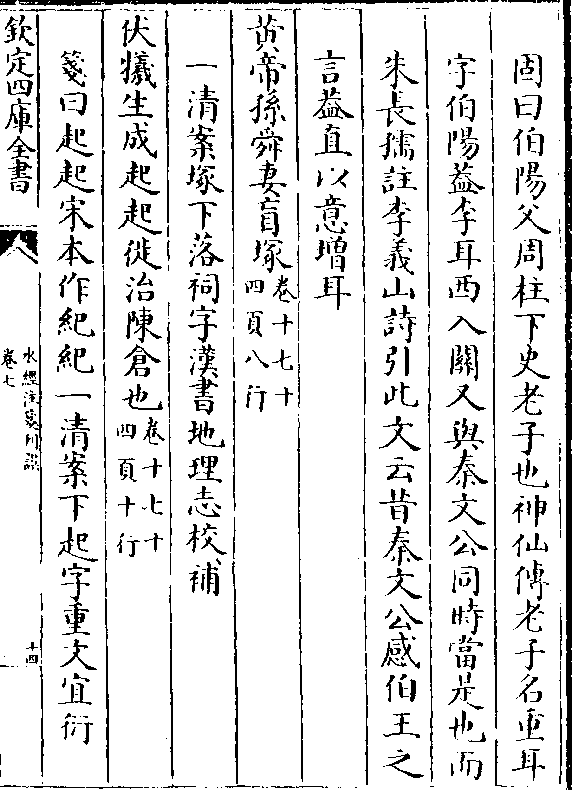 固曰伯陽父周柱下史老子也神仙傳老子名重耳
字伯陽葢李耳西入關又與秦文公同時當是也而
朱長孺註李義山詩引此文云昔秦文公感伯王之
言葢直以意增耳
黄帝孫舜妻盲塚卷十七十四頁八行
一清案塚下落祠字漢書地理志校補
伏犧生成起起徙治陳倉也卷十七十四頁十行
箋曰起起宋本作紀紀一清案下起字重文宜衍
欽定四庫全書
水經注箋刊誤
卷七
十四